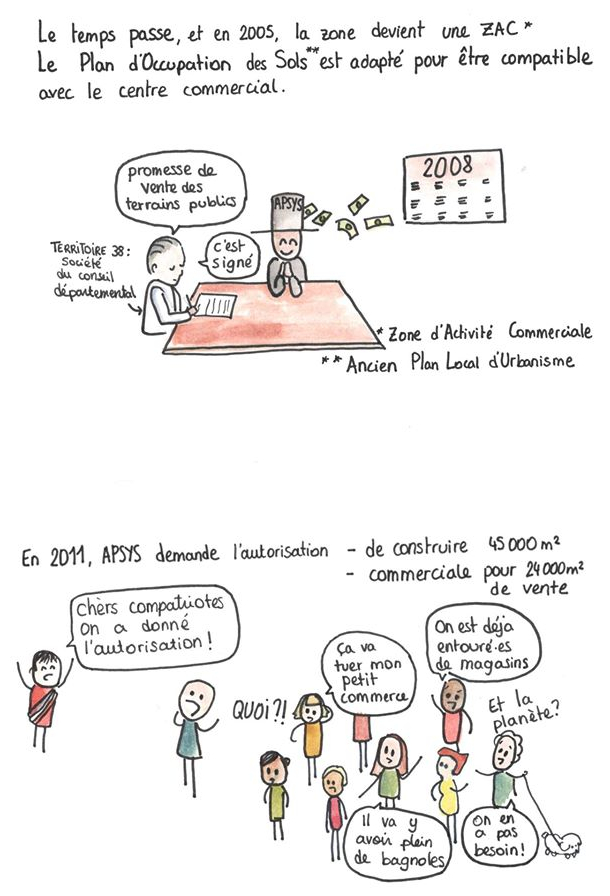 Le temps passe, et en 2005, la zone devient une ZAC *
Le Plan d'Occupation des Sols** est adapté pour être compatible
avec le centre commercial.
promesse de
vente des
terrains publics
APSYS
2008
TERRITOIRE 38 :
Société
du conseil
départemental
c'est
signé
* Zone d'Activité Commerciale
** Ancien Plan Local d'Urbanisme
En 2011, APSYS demande l'autorisation - de construire 45 000 m²
- commerciale pour 24 000 m²
de vente
Chèrs compatriotes
on a donné
l'autorisation !
QUOI ?!
Ça va
tuer mon
petit
commerce
On est déja
entouré·es
de magasins
Et la
planète ?
Il va y
avoir plein
de bagnoles
On en
a pas
besoin !